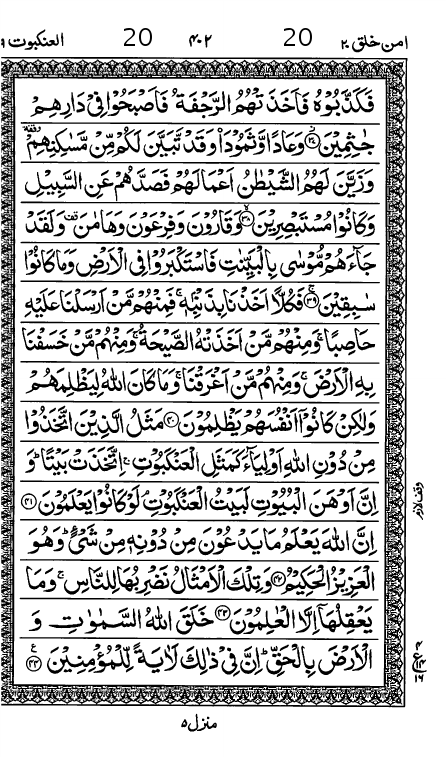 امن خلق ۲۰ 20 ۴۰۲ 20 العنكبوت ۲۹
فَكَذَّبُوْهُ فَاَخَذَتْهُمُ الرَّجْفَةُ فَاَصْبَحُوْا فِيْ دَارِهِمْ
جٰثِمِيْنَ ﴿۳۷﴾ وَعَادًا وَّثَمُوْدَا۟ وَقَدْ تَّبَيَّنَ لَكُمْ مِّنْ مَّسٰكِنِهِمْ
وَزَيَّنَ لَهُمُ الشَّيْطٰنُ اَعْمَالَهُمْ فَصَدَّهُمْ عَنِ السَّبِيْلِ
وَكَانُوْا مُسْتَبْصِرِيْنَ ﴿۳۸﴾ وَقَارُوْنَ وَفِرْعَوْنَ وَهَامٰنَ وَلَقَدْ
جَآءَهُمْ مُّوْسٰى بِالْبَيِّنٰتِ فَاسْتَكْبَرُوْا فِي الْاَرْضِ وَمَا كَانُوْا
سٰبِقِيْنَ ﴿۳۹﴾ فَكُلًّا اَخَذْنَا بِذَنْۢبِهٖ ۚ فَمِنْهُمْ مَّنْ اَرْسَلْنَا عَلَيْهِ
حَاصِبًا ۚ وَمِنْهُمْ مَّنْ اَخَذَتْهُ الصَّيْحَةُ ۚ وَمِنْهُمْ مَّنْ خَسَفْنَا
بِهِ الْاَرْضَ ۚ وَمِنْهُمْ مَّنْ اَغْرَقْنَا ۚ وَمَا كَانَ اللّٰهُ لِيَظْلِمَهُمْ
وَلٰكِنْ كَانُوْۤا اَنْفُسَهُمْ يَظْلِمُوْنَ ﴿۴۰﴾ مَثَلُ الَّذِيْنَ اتَّخَذُوْا
مِنْ دُوْنِ اللّٰهِ اَوْلِيَآءَ كَمَثَلِ الْعَنْكَبُوْتِ ۚ اِتَّخَذَتْ بَيْتًا ؕ وَ
اِنَّ اَوْهَنَ الْبُيُوْتِ لَبَيْتُ الْعَنْكَبُوْتِ ۘ لَوْ كَانُوْا يَعْلَمُوْنَ ﴿۴۱﴾
اِنَّ اللّٰهَ يَعْلَمُ مَا يَدْعُوْنَ مِنْ دُوْنِهٖ مِنْ شَيْءٍ ؕ وَهُوَ
الْعَزِيْزُ الْحَكِيْمُ ﴿۴۲﴾ وَتِلْكَ الْاَمْثَالُ نَضْرِبُهَا لِلنَّاسِ ۚ وَمَا
يَعْقِلُهَاۤ اِلَّا الْعٰلِمُوْنَ ﴿۴۳﴾ خَلَقَ اللّٰهُ السَّمٰوٰتِ وَ
الْاَرْضَ بِالْحَقِّ ؕ اِنَّ فِيْ ذٰلِكَ لَاٰيَةً لِّلْمُؤْمِنِيْنَ ﴿۴۴﴾
وقف لازم
منزل ۵